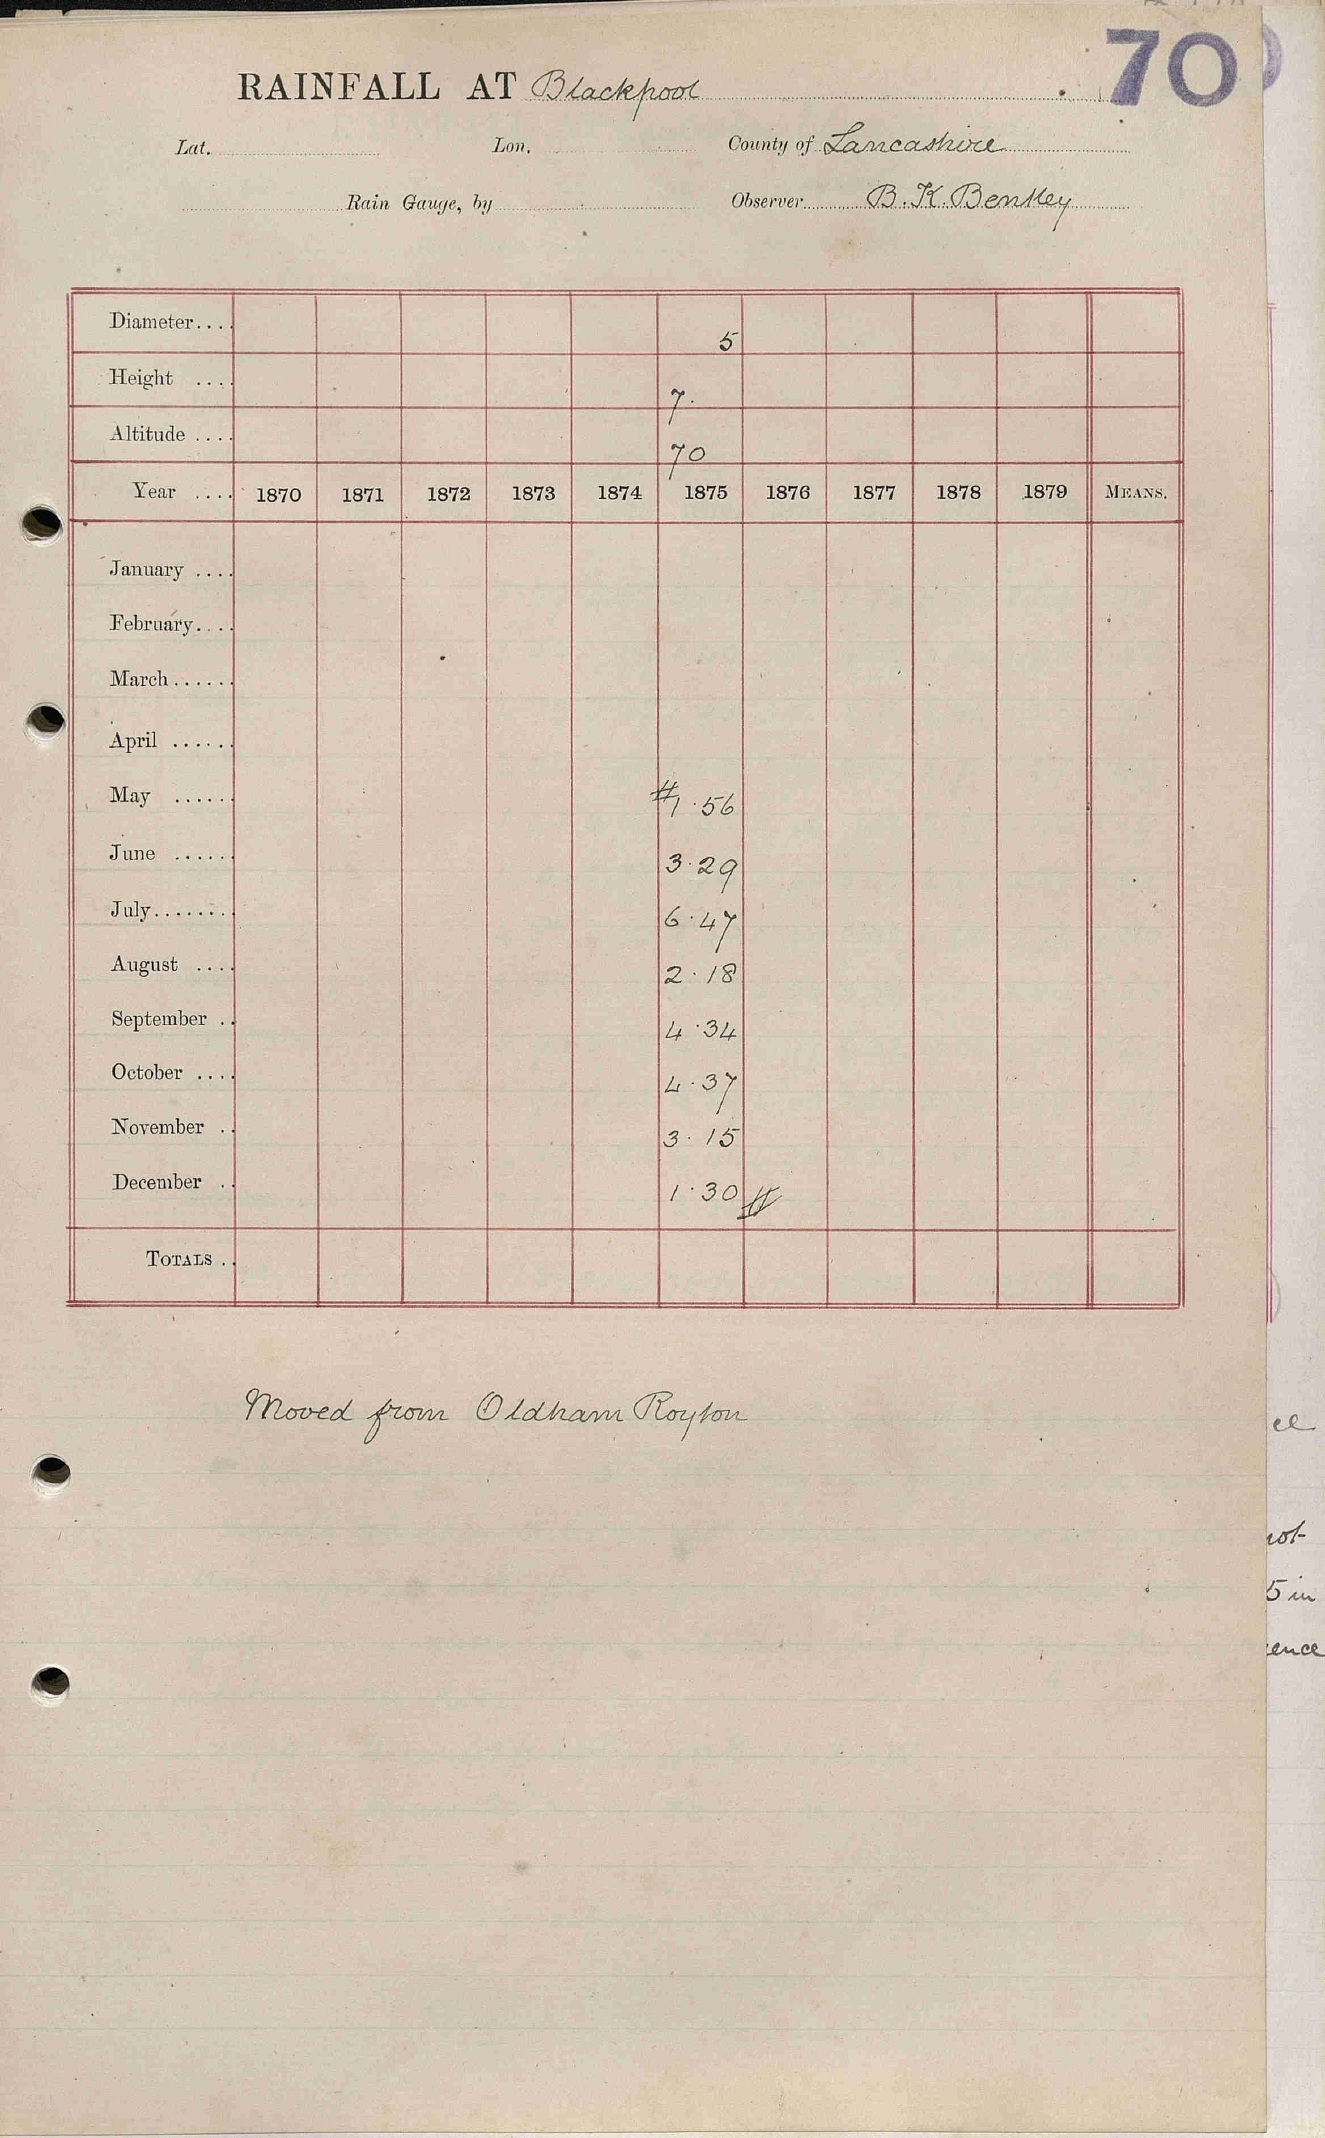 70
RAINFALL AT Blackpool
Lat. Lon. County of Lancashire
Rain Gauge, by Observer B. K. Bentley
Diameter.... 5
Height .... 7.
Altitude .... 70
Year .... 1870 1871 1872 1873 1874 1875 1876 1877 1878 1879 MEANS.
January ....
February....
March......
April ......
May ...... #1.56
June ...... 3.29
July....... 6.47
August .... 2.18
September .. 4.34
October .... 4.37
November .. 3.15
December .. 1.30 #
TOTALS ..
Moved from Oldham Royton
not
5 in